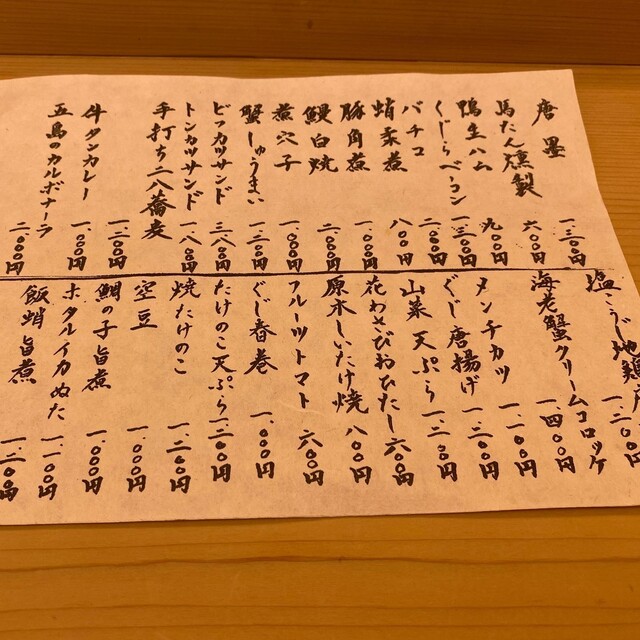 唐墨 一.三〇〇円
馬たん燻製 六〇〇円
鴨生ハム 九〇〇円
くじらベーコン 一.三〇〇円
バチコ 二.〇〇〇円
蛸柔煮 八〇〇円
豚角煮 一.〇〇〇円
鰻白焼 二.〇〇〇円
煮穴子 一.〇〇〇円
蟹しゅうまい 一.三〇〇円
ビフカツサンド 三.八〇〇円
トンカツサンド 一.八〇〇円
手打ち二八蕎麦 一.二〇〇円
牛タンカレー 一.〇〇〇円
五島のカルボナーラ 二.〇〇〇円
塩こうじ地鶏 一.二〇〇円
海老蟹クリームコロッケ 一.四〇〇円
メンチカツ 一.一〇〇円
ぐじ唐揚げ 一.〇〇〇円
山菜天ぷら 一.二〇〇円
花わさびおひたし 六〇〇円
原木しいたけ焼 八〇〇円
フルーツトマト 六〇〇円
ぐじ春巻 一.〇〇〇円
たけのこ天ぷら 一.二〇〇円
焼たけのこ 一.二〇〇円
空豆 一.〇〇〇円
鯛の子旨煮 一.〇〇〇円
ホタルイカぬた 一.一〇〇円
飯蛸旨煮 一.二〇〇円